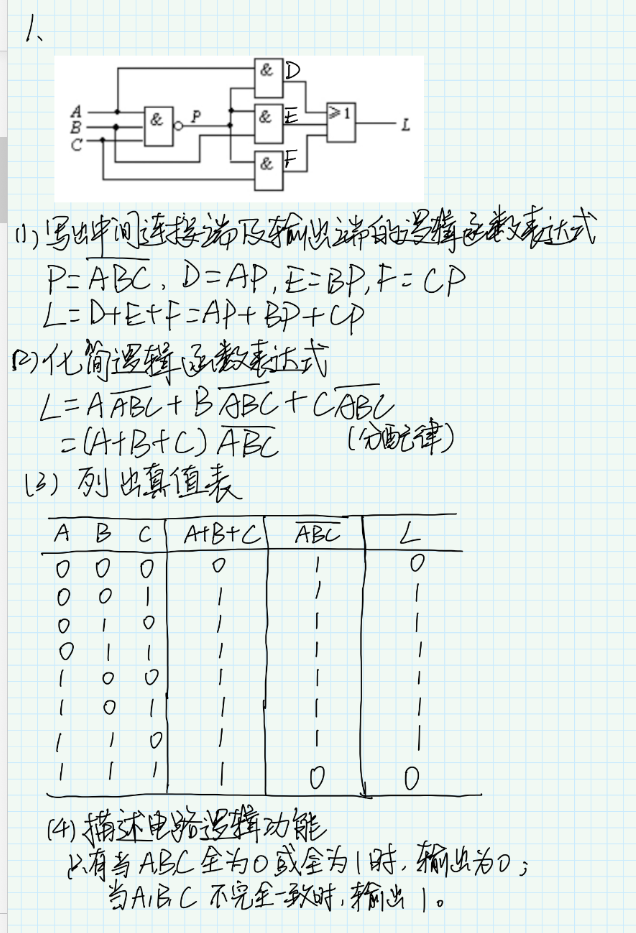 1、
& D
A
B
C
& P & E ≥1 L
& F
(1)写出中间连接端及输出端的逻辑函数表达式
P=\overline{ABC}, D=AP, E=BP, F=CP
L=D+E+F=AP+BP+CP
(2)化简逻辑函数表达式
L=A\overline{ABC}+B\overline{ABC}+C\overline{ABC}
=(A+B+C)\overline{ABC} (分配律)
(3) 列出真值表
A B C A+B+C \overline{ABC} L
0 0 0 0 1 0
0 0 1 1 1 1
0 1 0 1 1 1
0 1 1 1 1 1
1 0 0 1 1 1
1 0 1 1 1 1
1 1 0 1 1 1
1 1 1 1 0 0
(4)描述电路逻辑功能
只有当ABC全为0或全为1时,输出为0;
当A,B,C不完全一致时,输出1。